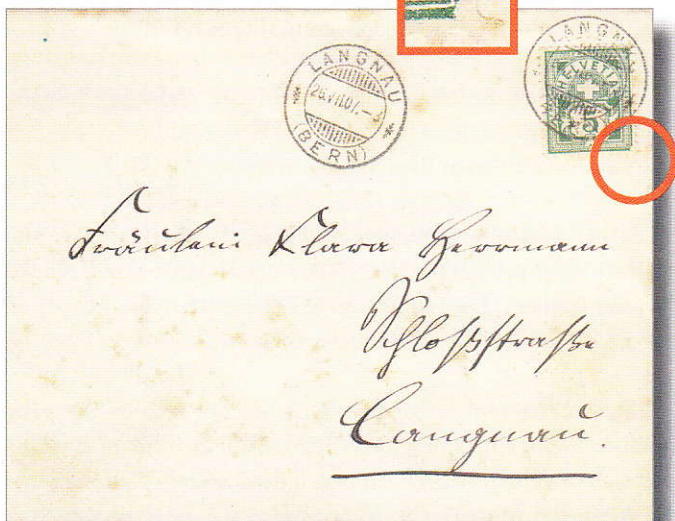 LANGNAU
25.VII.07.-3
(BERN)
LANGNAU
HELVETIA
Fräulein Klara Herrmann
Schloßstraße
Langnau.